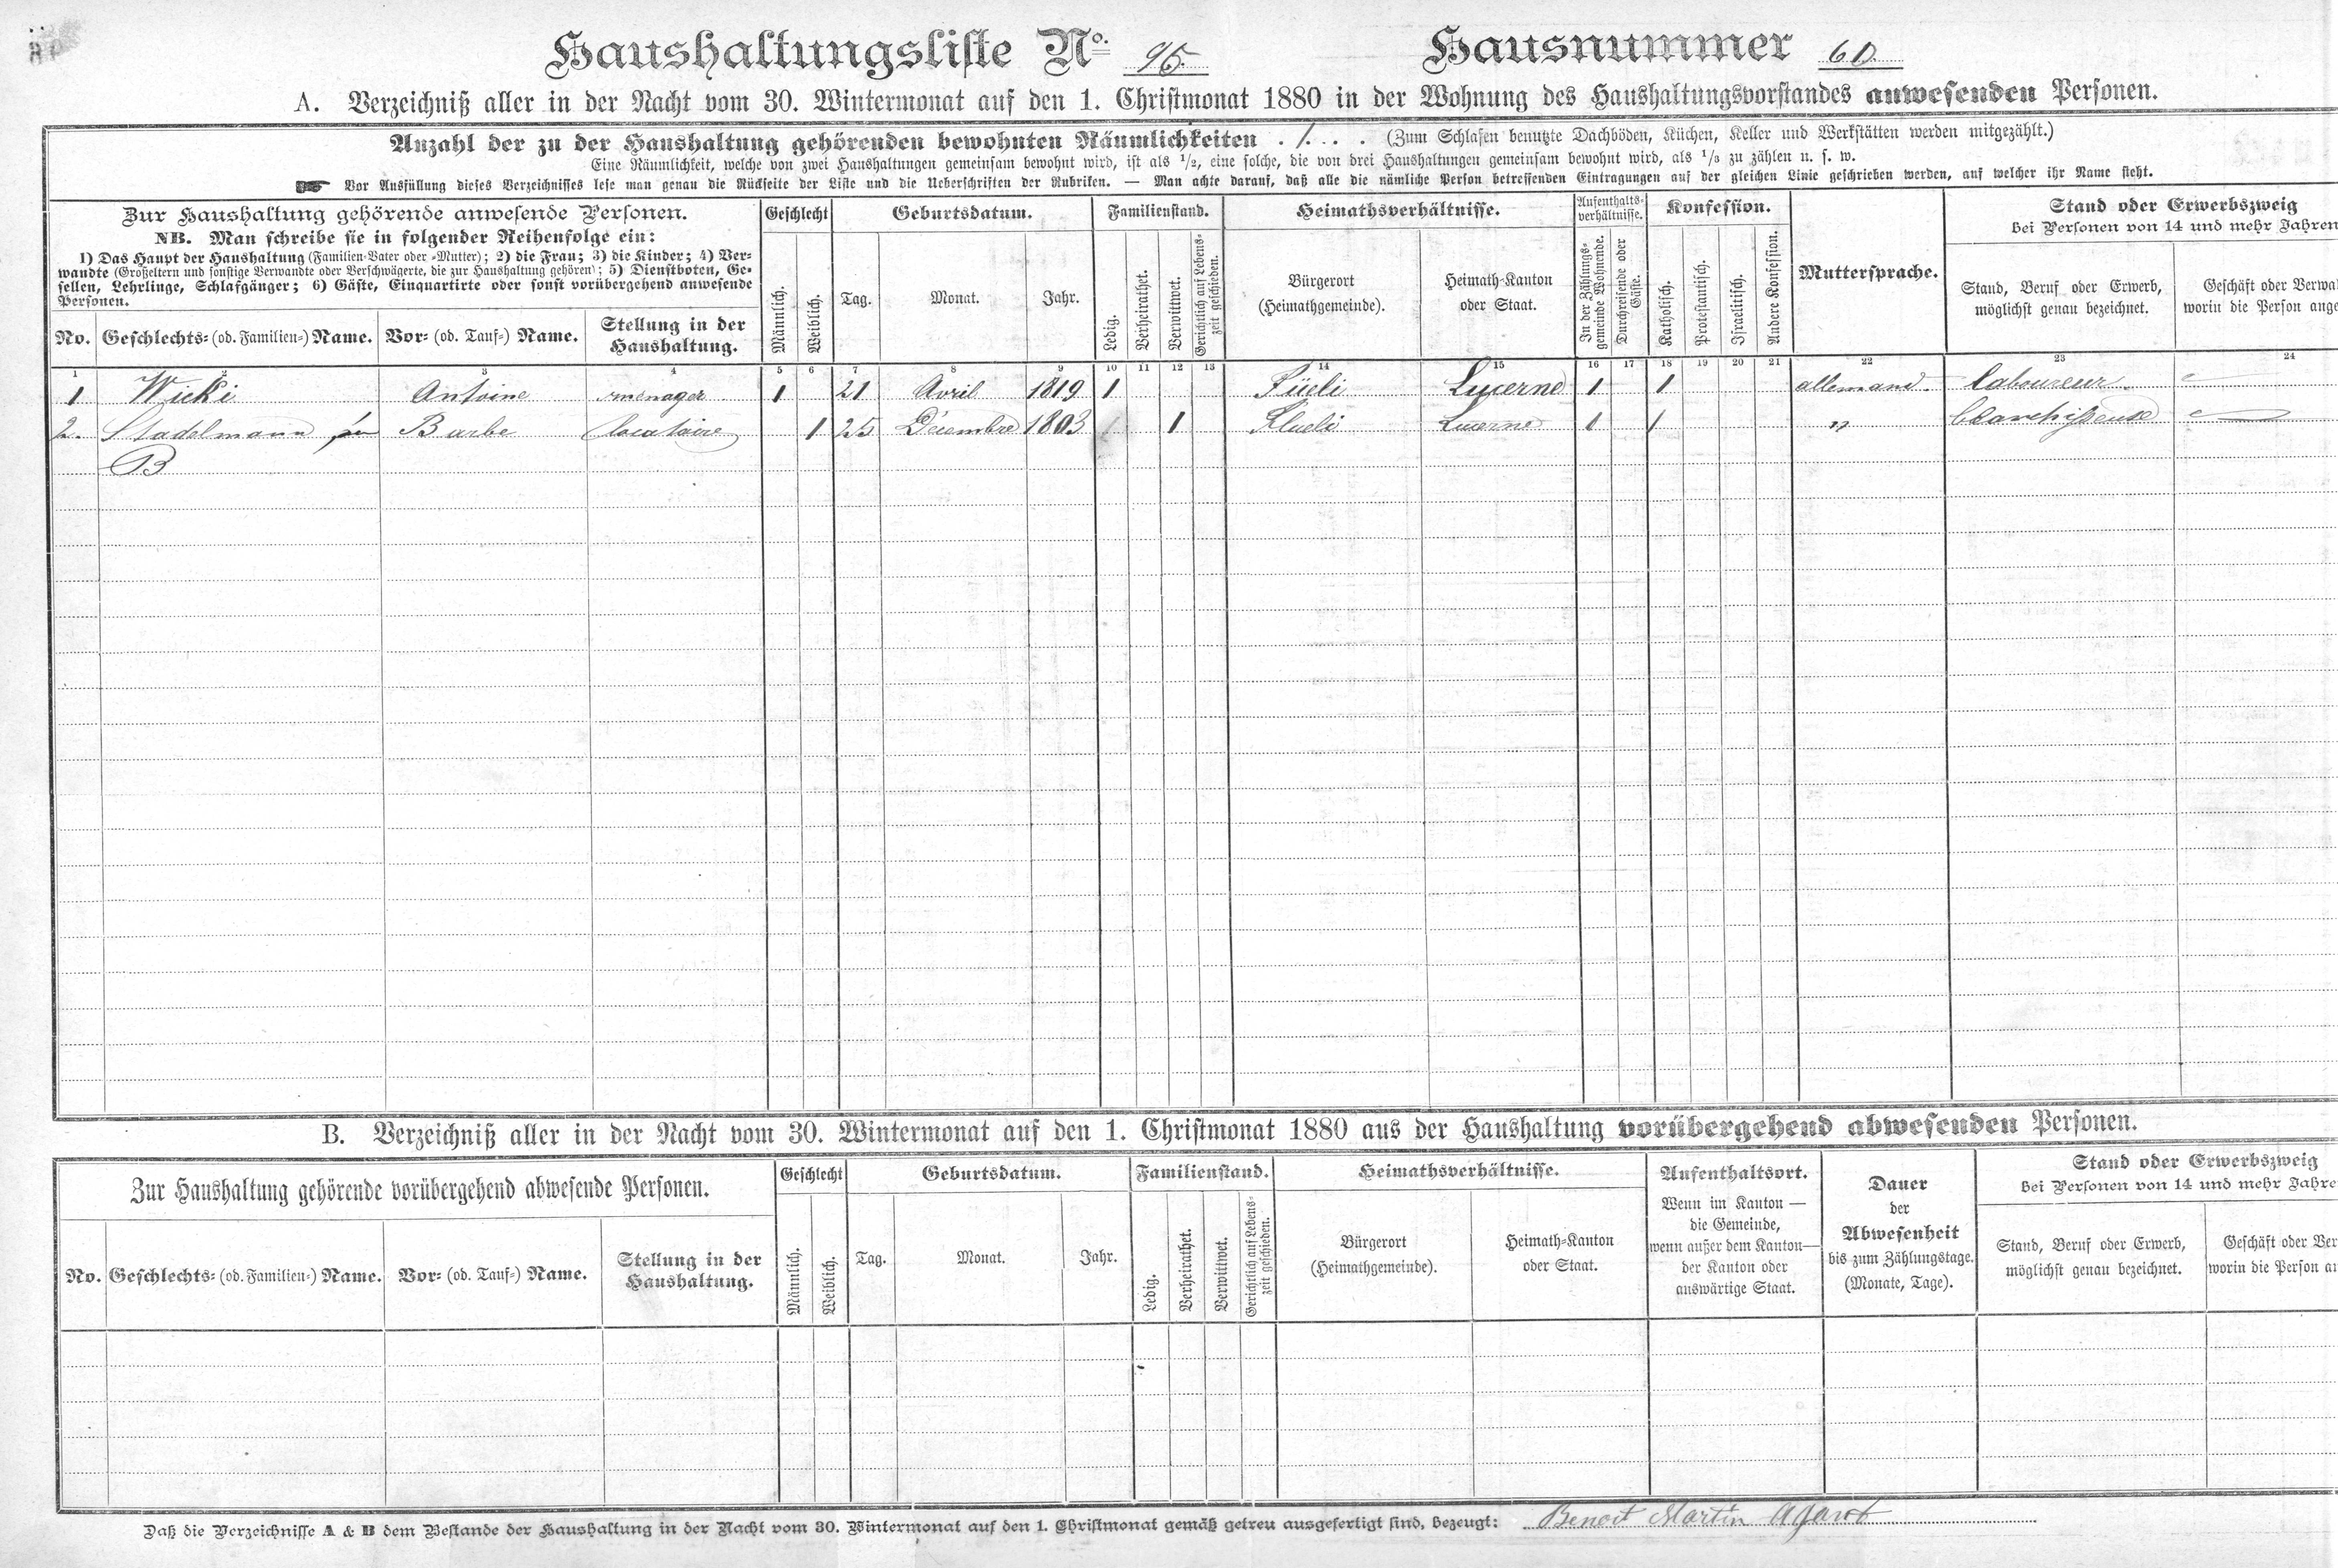 Haushaltungsliste No. 95. Hausnummer 60.
A. Verzeichniß aller in der Nacht vom 30. Wintermonat auf den 1. Christmonat 1880 in der Wohnung des Haushaltungsvorstandes anwesenden Personen.
Anzahl der zu der Haushaltung gehörenden bewohnten Räumlichkeiten . 1. . . (Zum Schlafen benutzte Dachböden, Küchen, Keller und Werkstätten werden mitgezählt.)
Eine Räumlichkeit, welche von zwei Haushaltungen gemeinsam bewohnt wird, ist als 1/2, eine solche, die von drei Haushaltungen gemeinsam bewohnt wird, als 1/3 zu zählen u. s. w.
Vor Ausfüllung dieses Verzeichnisses lese man genau die Rückseite der Liste und die Ueberschriften der Rubriken. — Man achte darauf, daß alle die nämliche Person betreffenden Eintragungen auf der gleichen Linie geschrieben werden, auf welcher ihr Name steht.
Zur Haushaltung gehörende anwesende Personen.
NB. Man schreibe sie in folgender Reihenfolge ein:
1) Das Haupt der Haushaltung (Familien-Vater oder -Mutter); 2) die Frau; 3) die Kinder; 4) Ver-
wandte (Großeltern und sonstige Verwandte oder Verschwägerte, die zur Haushaltung gehören); 5) Dienstboten, Ge-
sellen, Lehrlinge, Schlafgänger; 6) Gäste, Einquartirte oder sonst vorübergehend anwesende
Personen.
No. Geschlechts- (od. Familien-) Name. Vor- (od. Tauf-) Name. Stellung in der
Haushaltung.
Geschlecht
Männlich.
Weiblich.
Geburtsdatum.
Tag. Monat. Jahr.
Familienstand.
Ledig.
Verheirathet.
Verwittwet.
Gerichtlich auf Lebens-
zeit geschieden.
Heimathsverhältnisse.
Bürgerort
(Heimathgemeinde).
Heimath-Kanton
oder Staat.
Aufenthalts-
verhältnisse.
In der Zählungs-
gemeinde Wohnende.
Durchreisende oder
Gäste.
Konfession.
Katholisch.
Protestantisch.
Israelitisch.
Andere Konfession.
Muttersprache.
Stand oder Erwerbszweig
bei Personen von 14 und mehr Jahren
Stand, Beruf oder Erwerb,
möglichst genau bezeichnet.
Geschäft oder Verwal
worin die Person ange
1 3 4 5 6 7 8 9 10 11 12 13 14 15 16 17 18 19 20 21 22 23 24
1 Wicki Antoine ménager 1 21 Avril 1819 1 Füeli Lucerne 1 1 allemand. laboureur
2. Stadelmann Barbe locataire 1 25 Décembre 1803 1 Flüeli Lucerne 1 1 " blanchisseuse
B
B. Verzeichniß aller in der Nacht vom 30. Wintermonat auf den 1. Christmonat 1880 aus der Haushaltung vorübergehend abwesenden Personen.
Zur Haushaltung gehörende vorübergehend abwesende Personen.
No. Geschlechts- (od. Familien-) Name. Vor- (od. Tauf-) Name. Stellung in der
Haushaltung.
Geschlecht
Männlich.
Weiblich.
Geburtsdatum.
Tag. Monat. Jahr.
Familienstand.
Ledig.
Verheirathet.
Verwittwet.
Gerichtlich auf Lebens-
zeit geschieden.
Heimathsverhältnisse.
Bürgerort
(Heimathgemeinde).
Heimath-Kanton
oder Staat.
Aufenthaltsort.
Wenn im Kanton —
die Gemeinde,
wenn außer dem Kanton—
der Kanton oder
auswärtige Staat.
Dauer
der
Abwesenheit
bis zum Zählungstage.
(Monate, Tage).
Stand oder Erwerbszweig
bei Personen von 14 und mehr Jahre
Stand, Beruf oder Erwerb,
möglichst genau bezeichnet.
Geschäft oder Ver
worin die Person an
Daß die Verzeichnisse A & B dem Bestande der Haushaltung in der Nacht vom 30. Wintermonat auf den 1. Christmonat gemäß getreu ausgefertigt sind, bezeugt: Benoit Martin